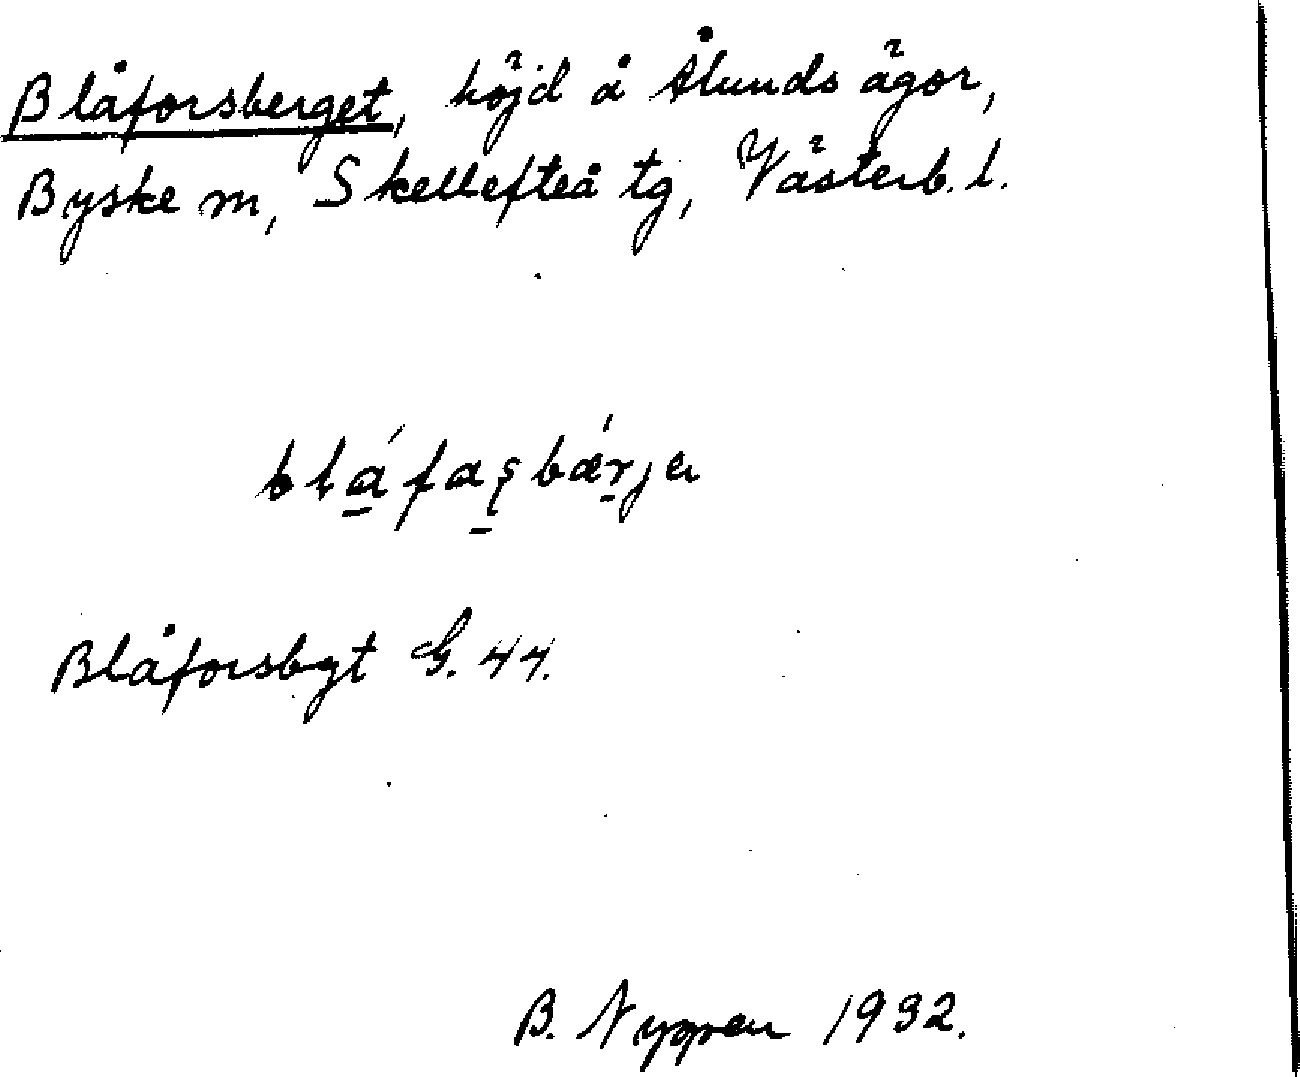 Blåforsberget, höjd å Ålunds ägor,
Byske sn, Skellefteå tg, Västerb. l.
blá̱fa̱ʂbǽṟja
Blåforsbgt G. 44.
B. Nygren 1932.